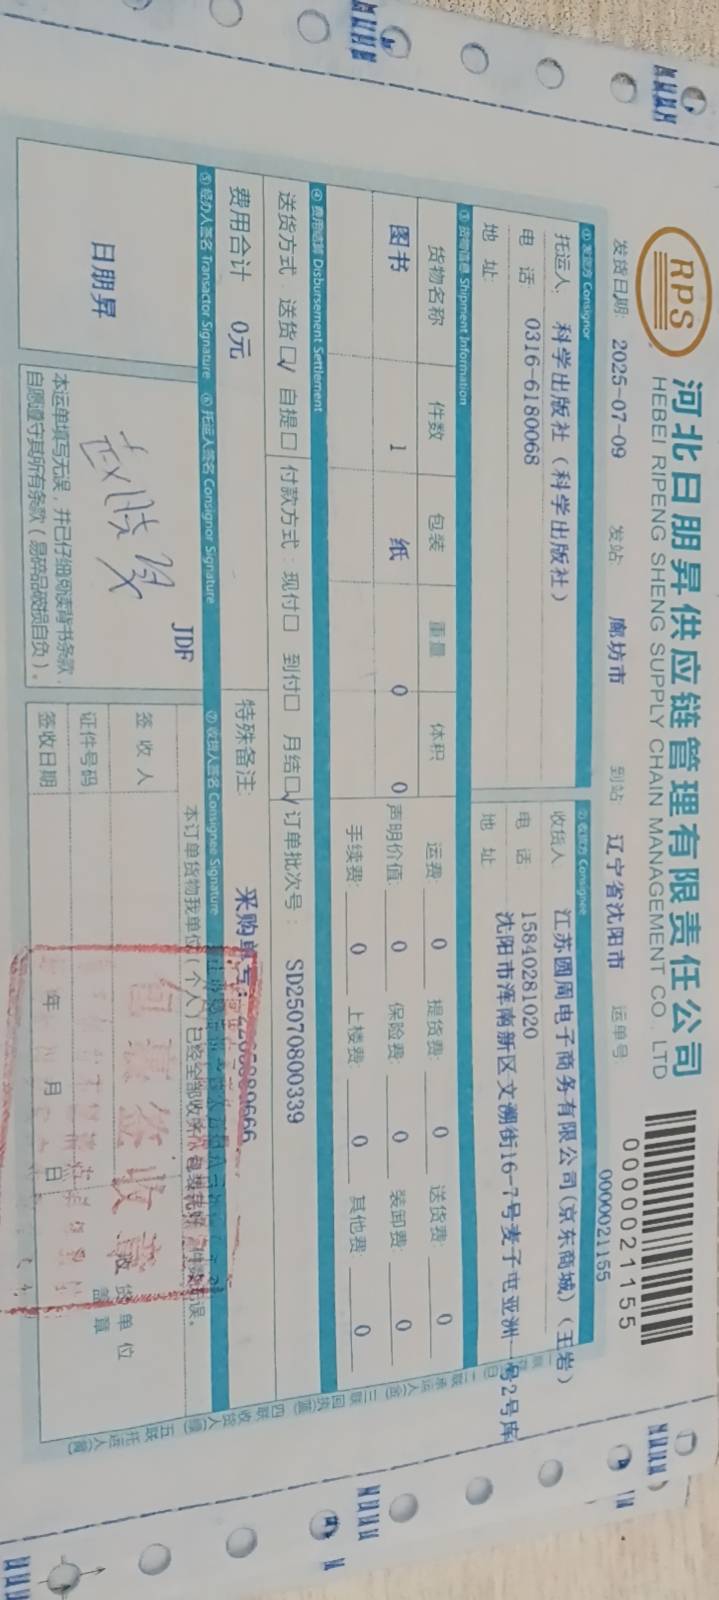 RPS
河北日朋昇供应链管理有限责任公司
HEBEI RIPENG SHENG SUPPLY CHAIN MANAGEMENT CO . LTD
0000021155
发货日期: 2025-07-09 发站: 廊坊市 到站: 辽宁省沈阳市 运单号: 0000021155
① 发货方 Consignor
托运人: 科学出版社(科学出版社)
电 话 0316-6180068
地 址:
② 收货方 Consignee
收货人 江苏圆周电子商务有限公司(京东商城)(王岩)
电 话 15840281020
地 址 沈阳市浑南新区文溯街16-7号麦子屯亚洲一号2号库
③ 货物信息 Shipment Information
货物名称 件数 包装 重量 体积
图书 1 纸 0 0
运费: 0 提货费: 0 送货费: 0
声明价值: 0 保险费: 0 装卸费: 0
手续费: 0 上楼费: 0 其他费: 0
④ 费用结算 Disbursement Settlement
送货方式: 送货☑ 自提□ 付款方式: 现付□ 到付□ 月结☑ 订单批次号: SD25070800339
费用合计 0元 特殊备注:
⑤ 经办人签名 Transactor Signature ⑥ 托运人签名 Consignor Signature ⑦ 收货人签名 Consignee Signature
日朋昇
JDF
本运单填写无误,并已仔细阅读背书条款,
自愿遵守其所有条款(易碎品破损自负)。
签 收 人
证件号码
签收日期 年 月 日
收货单位
盖 章
包裹签收章